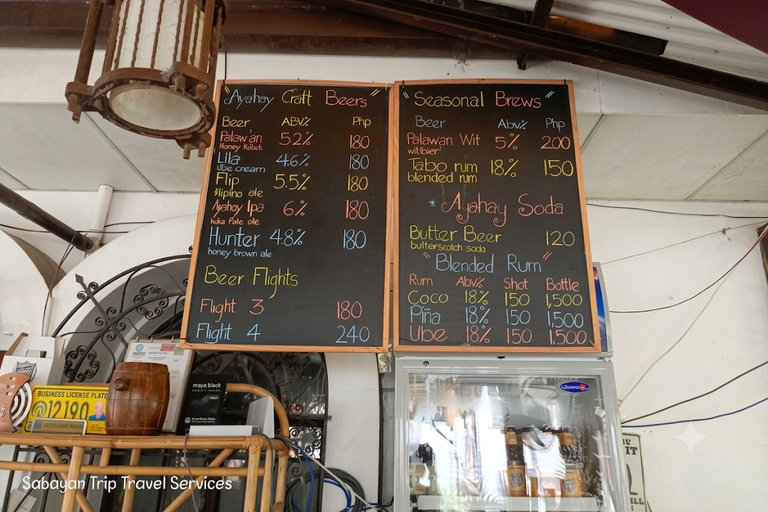 "Ayahay Craft Beers"
Beer ABV% Php
Palaw'an 5.2% 180
Honey Kölsch
Lila 4.6% 180
Ube cream
Flip 5.5% 180
filipino ale
Ayahay Ipa 6% 180
Hunter 4.8% 180
honey brown ale
Beer Flights
Flight 3 180
Flight 4 240
"Seasonal Brews"
Beer Abv% Php
Palawan Wit 5% 200
witbier
Tabo rum 18% 150
blended rum
* Ayahay Soda
Butter Beer 120
butterscotch soda
"Blended Rum"
Rum Abv% Shot Bottle
Coco 18% 150 1,500
Piña 18% 150 1,500
Ube 18% 150 1,500
BUSINESS LICENSE PLATE
12190
maya black
Sabayan Trip Travel Services